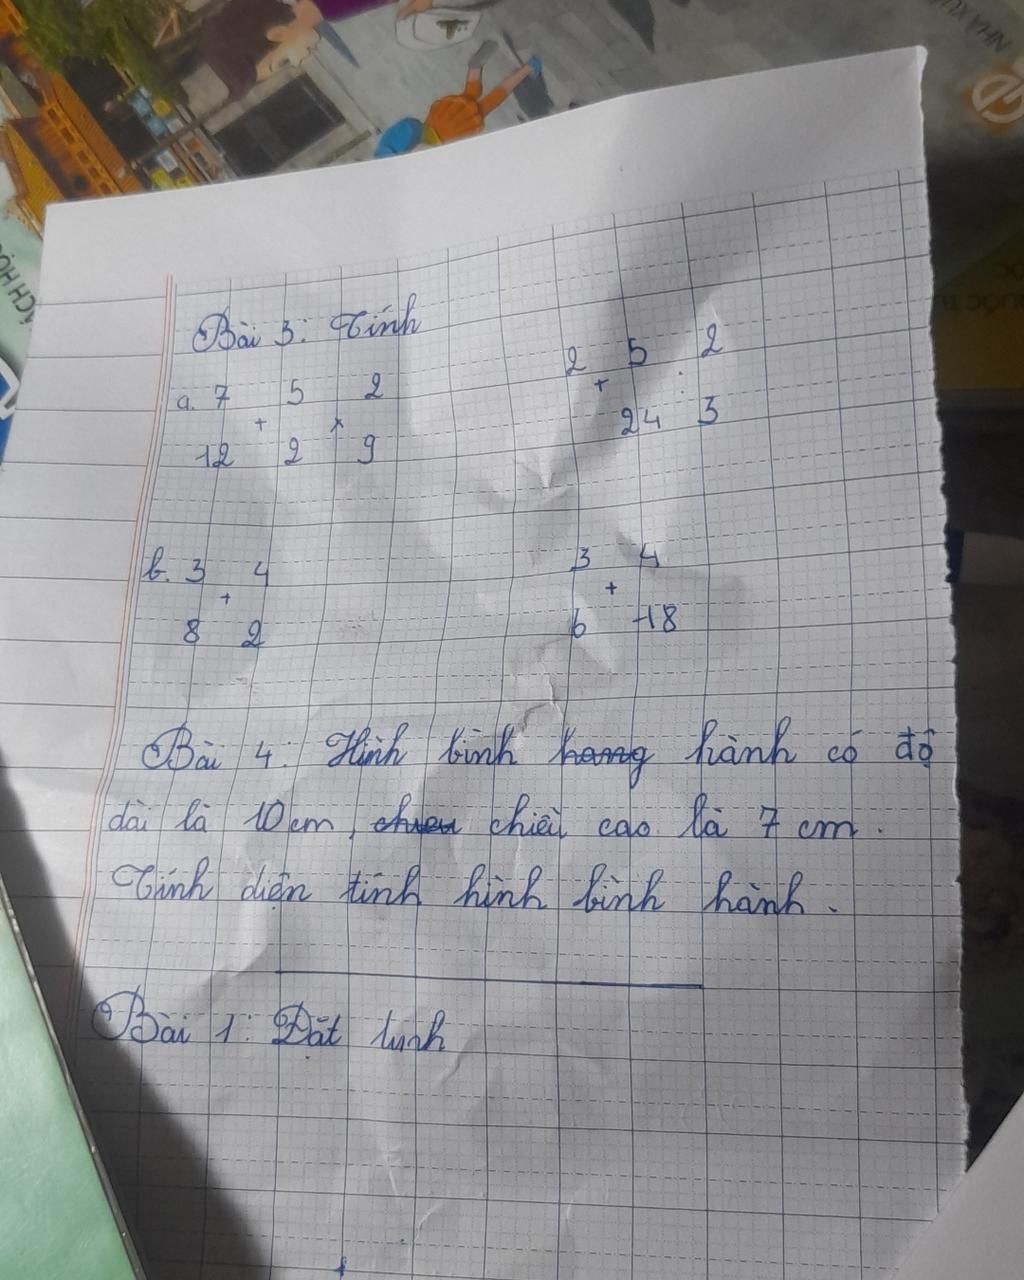 Bài 3: Tính
a. 7 5 2 2 5 2
+ × + :
12 2 9 24 3
b. 3 4 3 4
+ +
8 2 6 18
Bài 4: Hình bình hang hành có độ
dài là 10cm, chieu chiều cao là 7 cm.
Tính diện tính hình bình hành.
Bài 1: Đặt tính